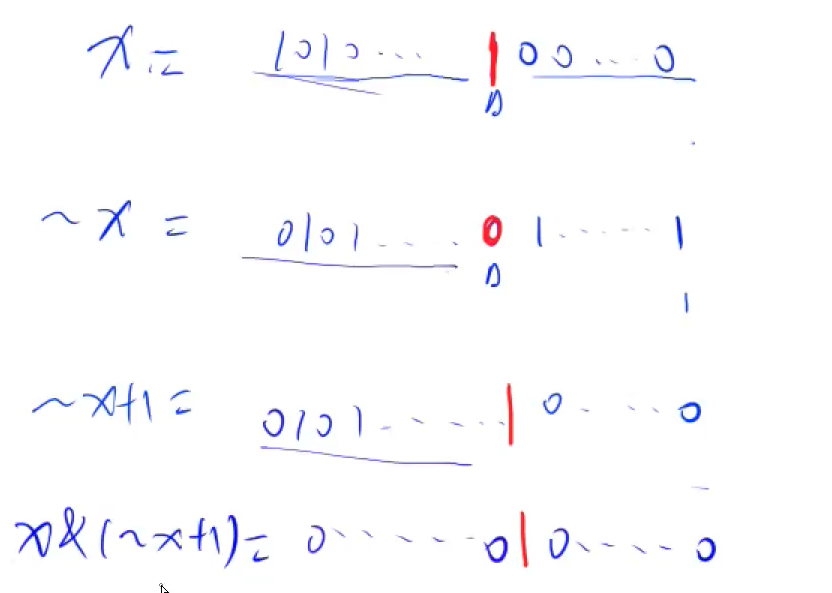 x = 1010... 1 00...0
~x = 0101.... 0 1......1
1
~x+1 = 0101...... 1 0....0
x&(~x+1) = 0......0 1 0......0